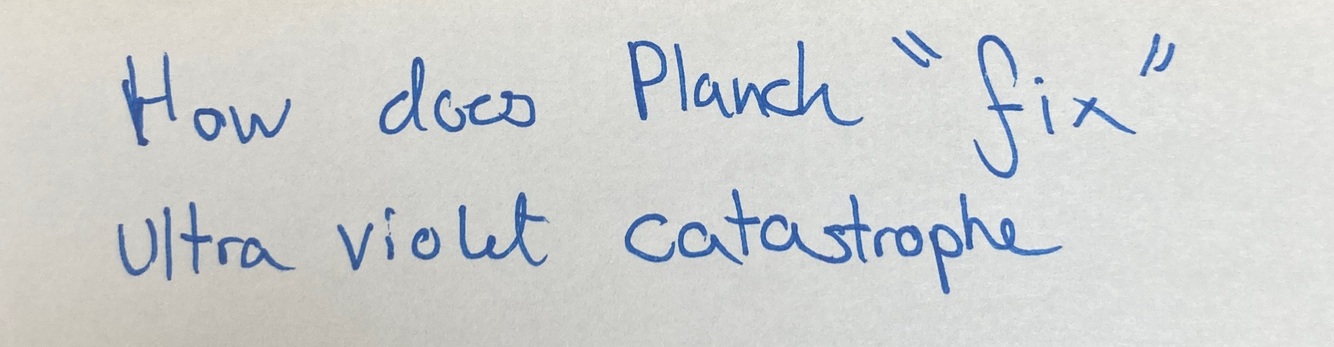 How does Planck "fix"
Ultra violet catastrophe